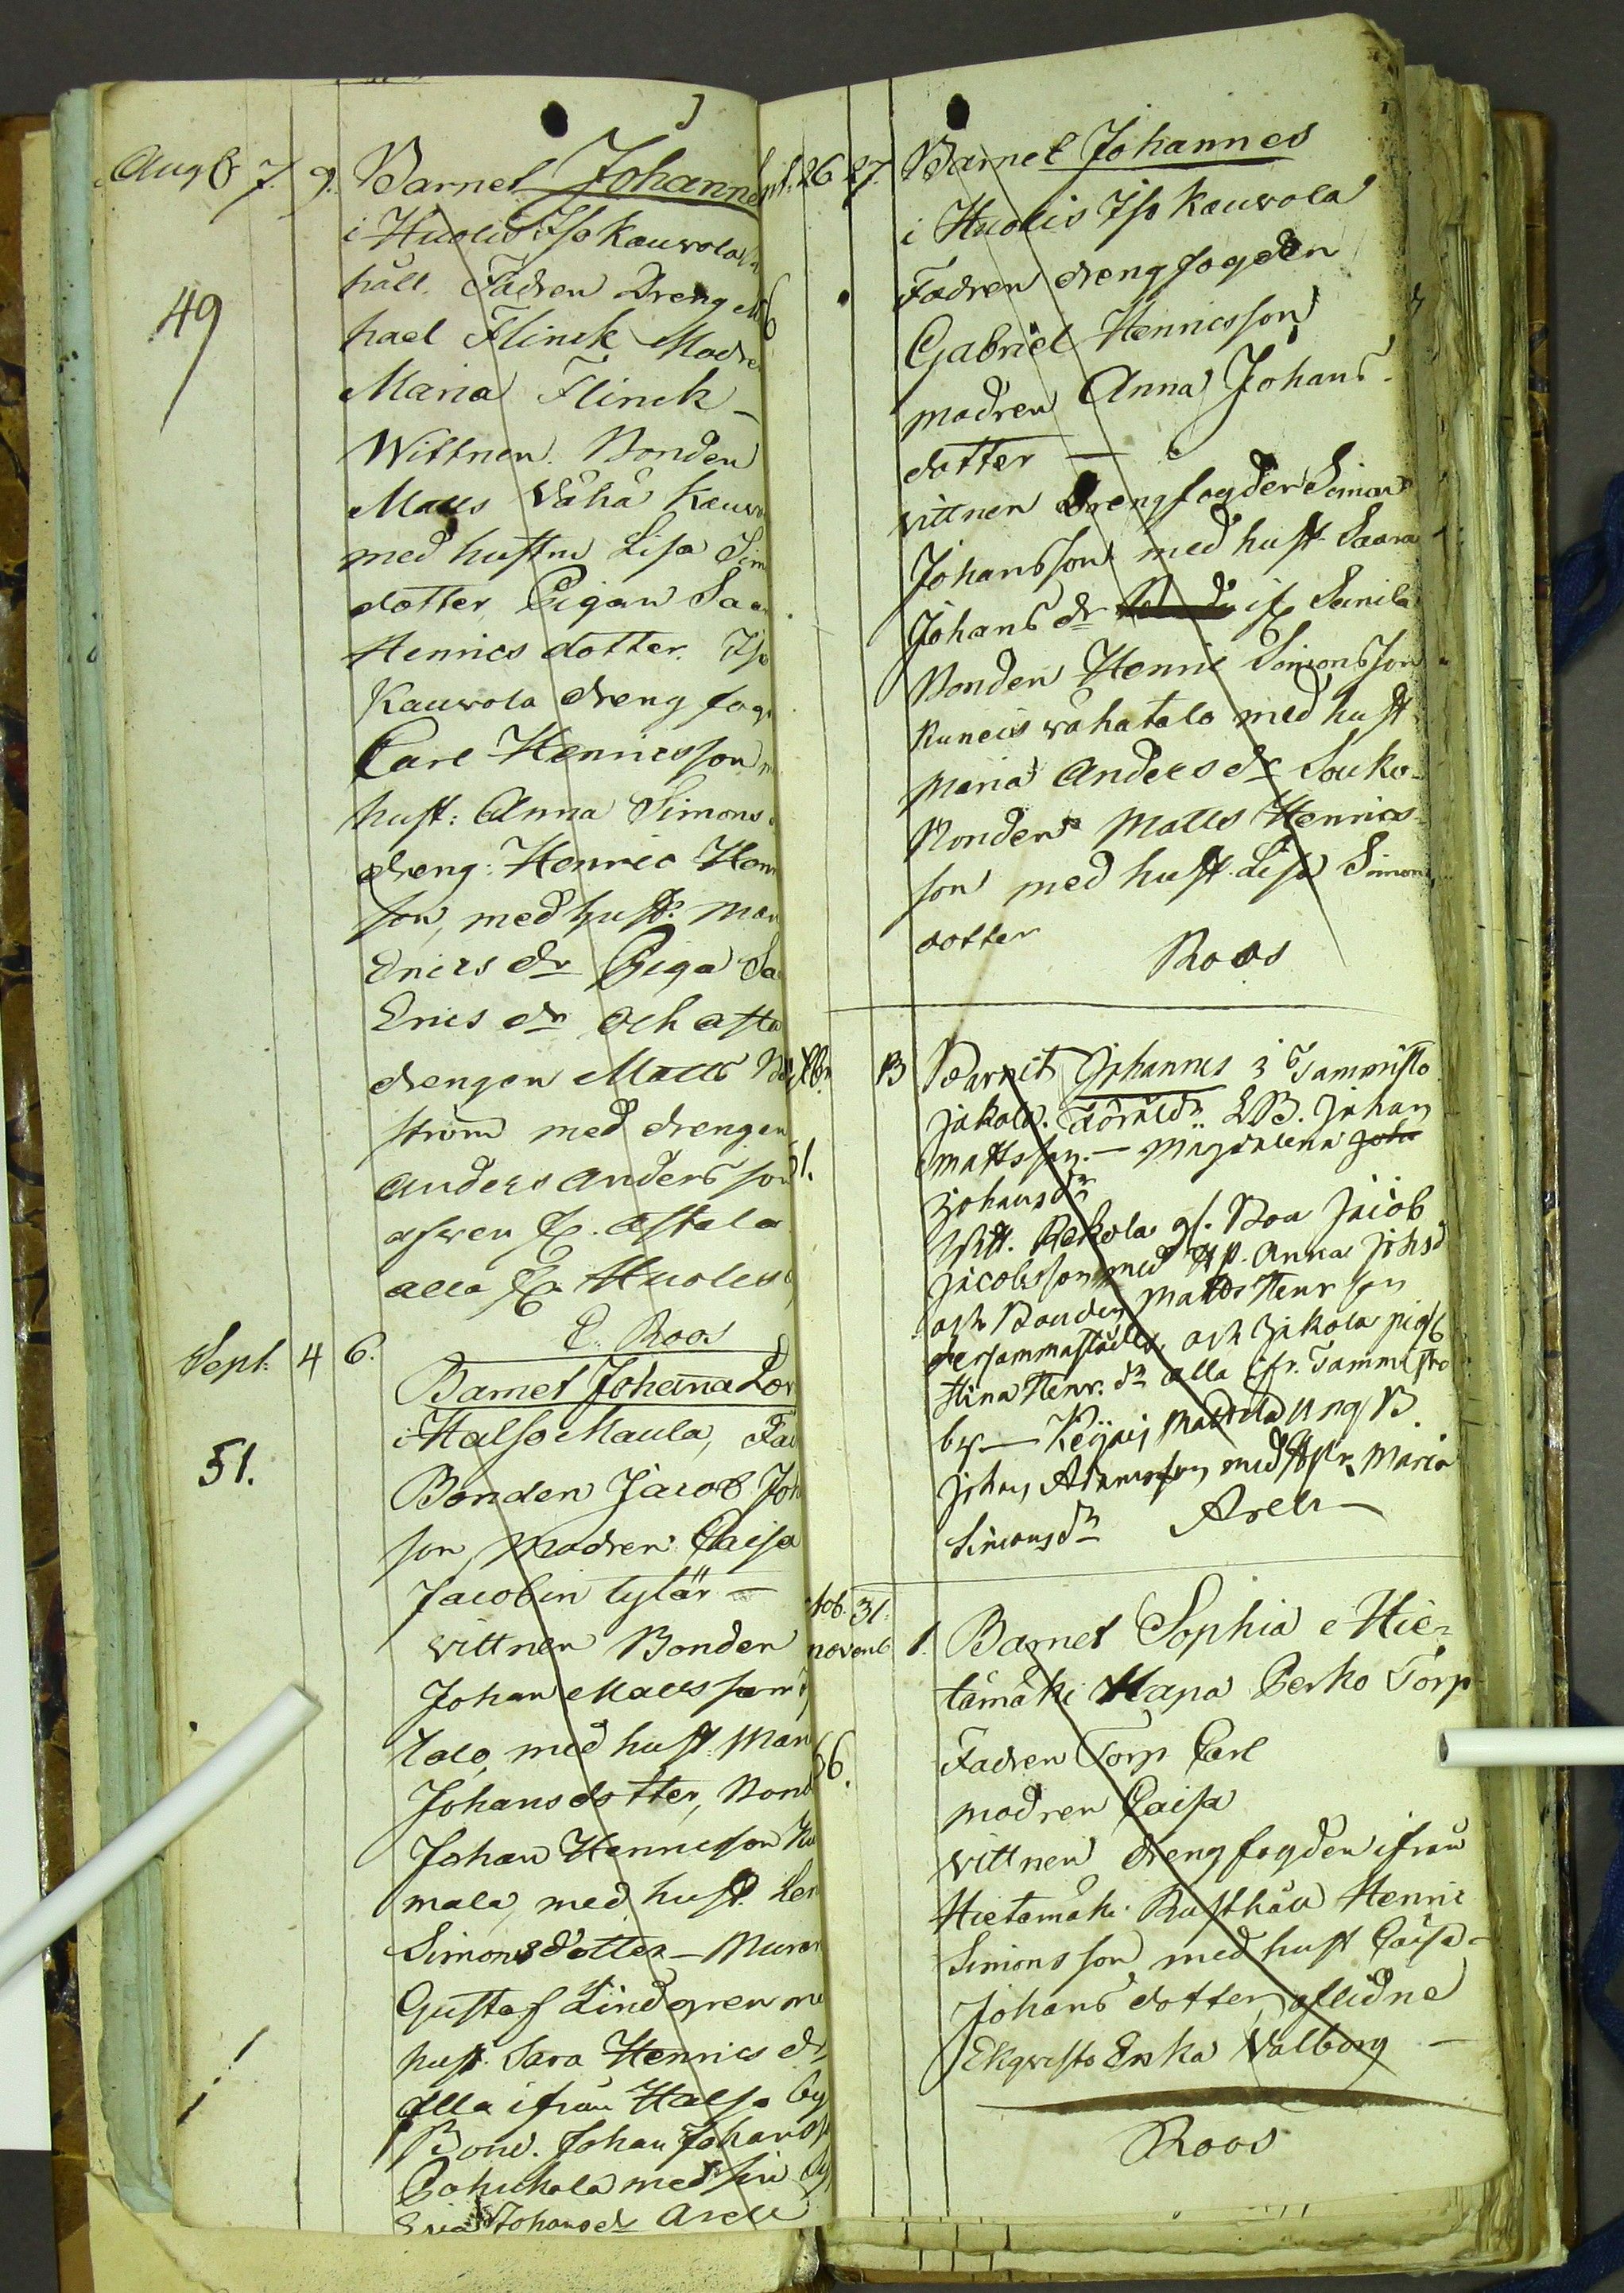 Aug 7. 9. Barnet Johannes
i Huolis Iso Kauvola
håll. Fadren Dreng
49
hael Flinck Modre
Maria Flinck
Wittnen. Bonden
Matts Vähä Kauvo
med hustru Lisa Sim
dotter, Pigan Saa
Henrics dotter. Iso
Kauvola dreng fog
Carl Henricsson
hust: Anna Simons
dreng: Henric Hen
son, med hust. Mar
Erics dr Piga Sa
Erics dr och asta
drengen Matts
ström med drengen
Anders Andersson
astala
alla Huolis
E. Roos
Sept. 4 6.
Barnet Johanna Lov
i Halso Maula, Fad
51.
Bonden Jacob Joh
son Modren Caisa
Jacobin tytär —
vittnen Bonden
Johan Mattsson
talo, med hust: Mari
Johansdotter, Bond
Johan Henricsson Ku
mala, med hust. Len
Simonsdotter — Murar
Gustaf Lindgren me
hust. Sara Henrics dr
alla ifrån Halso by
Bond. Johan Johans
med sin
Johans dr Arell
26 27. Barnet Johannes
i Huolis Iso Kauvola
Fadren drengfogden
Gabriel Henricsson
modren Anna Johans
dotter —
vittnen Drengfogden Simon
Johansson med hust Saara
Johans dr if Seinilä
Bonden Henric Simonsson
vähätalo med hust
Maria Anders dr Souko
Bonden Matts Henrics
son med hust. Lisa Simons
dotter
Roos
13 Barnet Johannes i Tammisto
Jakola. Föräldr: LB. Johan
Mattsson. — Magdalena
Johansdr
Witt. Rekola gl. Boa Jacob
Jacobsson med H. Anna Johsd
och Bonden Matts Henrson
dersammastädes, och Jakola pig
Stina Henr. dr alla ifr. Tammisto
by — Mattila ung B.
Johan Adamsson med Hstr. Maria
Simonsdr Arell
tob. 31.
novemb 1. Barnet Sophia i Hie-
tämäki Hapa Perko Torp
66.
Fadren Torp Carl
modren Caisa
vittnen drengfogden ifrån
Hietamäki Rusthåll Henric
Simonsson med hust Caisa
Johans dotter, aflidne
Ekqvists Enka Valborg —
Roos